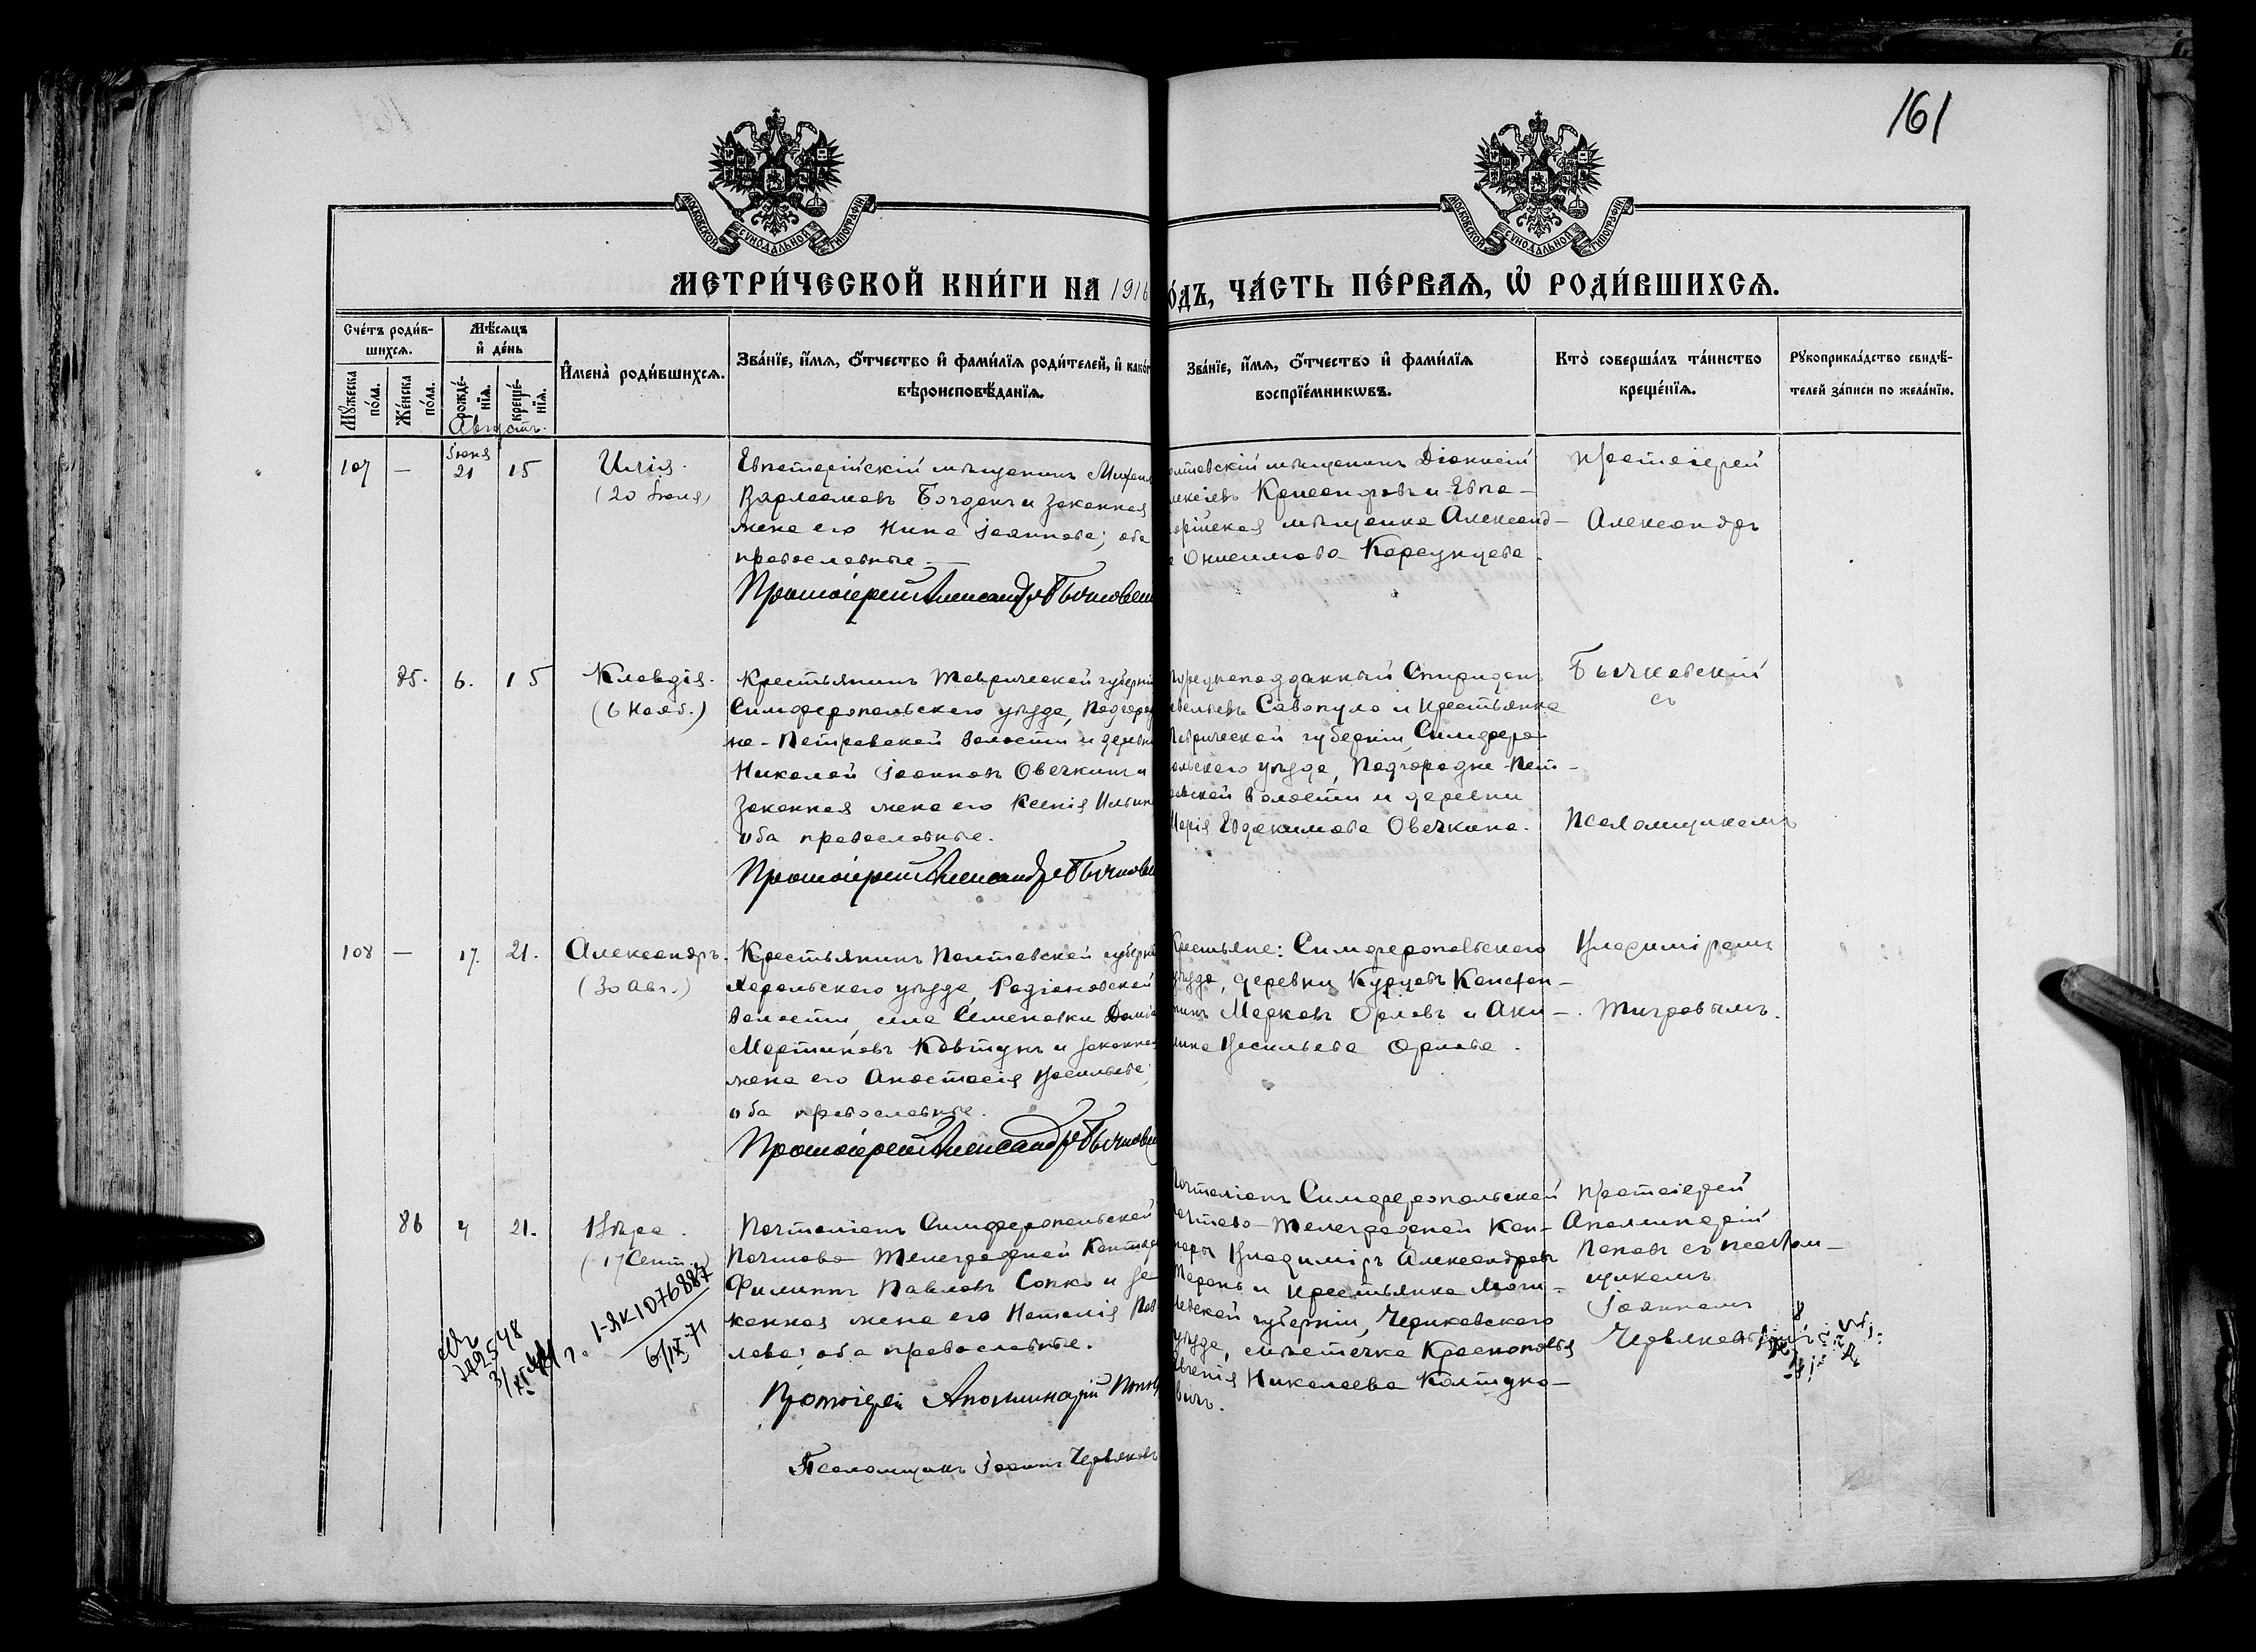 161
МОСКОВСКОЙ СѴНОДАЛЬНОЙ ТИПОГРАФІИ
МОСКОВСКОЙ СѴНОДАЛЬНОЙ ТИПОГРАФІИ
МЕТРИ́ЧЕСКОЙ КНИ́ГИ НА 1916
О́ДЪ, ЧА́СТЬ ПЕ́РВАѦ, Ѡ҆ РОДИ́ВШИХСѦ.
Сче́тъ роди́в-
шихсѧ.
Мꙋ́жеска по́ла.
Же́нска по́ла.
Мѣ́сѧцъ
и҆ де́нь
рожде́-
нїѧ.
креще́-
нїѧ.
Августъ.
И҆мена̀ роди́вшихсѧ.
Зва́нїе, и҆́мѧ, ѻ҆́тчество и҆ фами́лїѧ роди́телей, и҆ како́г
вѣроисповѣ́данїѧ.
Зва́нїе, и҆́мѧ, ѻ҆́тчество и҆ фами́лїѧ
воспрїе́мникѡвъ.
Кто̀ соверша́лъ та́инство
креще́нїѧ.
Рꙋкоприкла́дство свидѣ́-
телей за́писи по жела́нїю.
107 — Іюля 21 15
Илія.
(20 Іюля)
Евпаторійскій мѣщанинъ Михаил
Варлаамовъ Богданъ и законная
жена его Нина Іоаннова; оба
православные. —
Протоіерей Александръ Бычковск
олтавскій мѣщанинъ Діонисій
лексіевъ Крисанфовъ и Евпа-
торійская мѣщанка Александ-
а Онисимова Карсунцева.
Протоіерей
Александръ
85. 6. 15
Клавдія.
(6 Нояб.)
Крестьянинъ Таврической губерніи
Симферопольскаго уѣзда, Подгород
не-Петровской волости и деревни
Николай Іоанновъ Овечкинъ и
законная жена его Ксенія Ильин
оба православные.
Протоіерей Александръ Бычков
турецкоподданный Спиридонъ
авельевъ Савопуло и крестьянка
Таврической губерніи, Симферо-
польскаго уѣзда, Подгородне-Пет-
ровской волости и деревни
Марія Евдокимова Овечкина.
Бычковскій
съ
Псаломщикомъ
108 — 17. 21.
Александръ.
(30 Авг.)
Крестьянинъ Полтавской губерні
Хорольскаго уѣзда, Родіоновской
волости, села Семеновки
Мартиновъ Ковтунъ и законная
жена его Анастасія Васильева;
оба православные.
Протоіерей Александръ Бычков
Крестьяне: Симферопольскаго
уѣзда, деревни Курцовъ Констан-
тинъ Марковъ Орловъ и Аки-
лина Васильева Орлова.
Владиміромъ
Тигровымъ.
86 4 21.
Вѣра.
(17 Сент.)
Почталіонъ Симферопольской
Почтово-Телеграфной Контор
Филиппъ Павловъ Сопко и за-
конная жена его Наталія Пав-
лова; оба православные.
Протоіерей Аполлинарій Попов
Псаломщикъ Іоаннъ Червяковъ
Почталіонъ Симферопольской
очтово-Телеграфной Кон-
торы Владиміръ Александровъ
и крестьянка Моги-
левской губерніи, Чериковскаго
уѣзда, мѣстечка Краснополья
Евгенія Николаева Колтуно-
вичъ.
Протоіерей
Аполлинарій
Поповъ съ псалом-
щикомъ
Іоанномъ
Червяковымъ
I-ЯК 1076887
6/IX-71